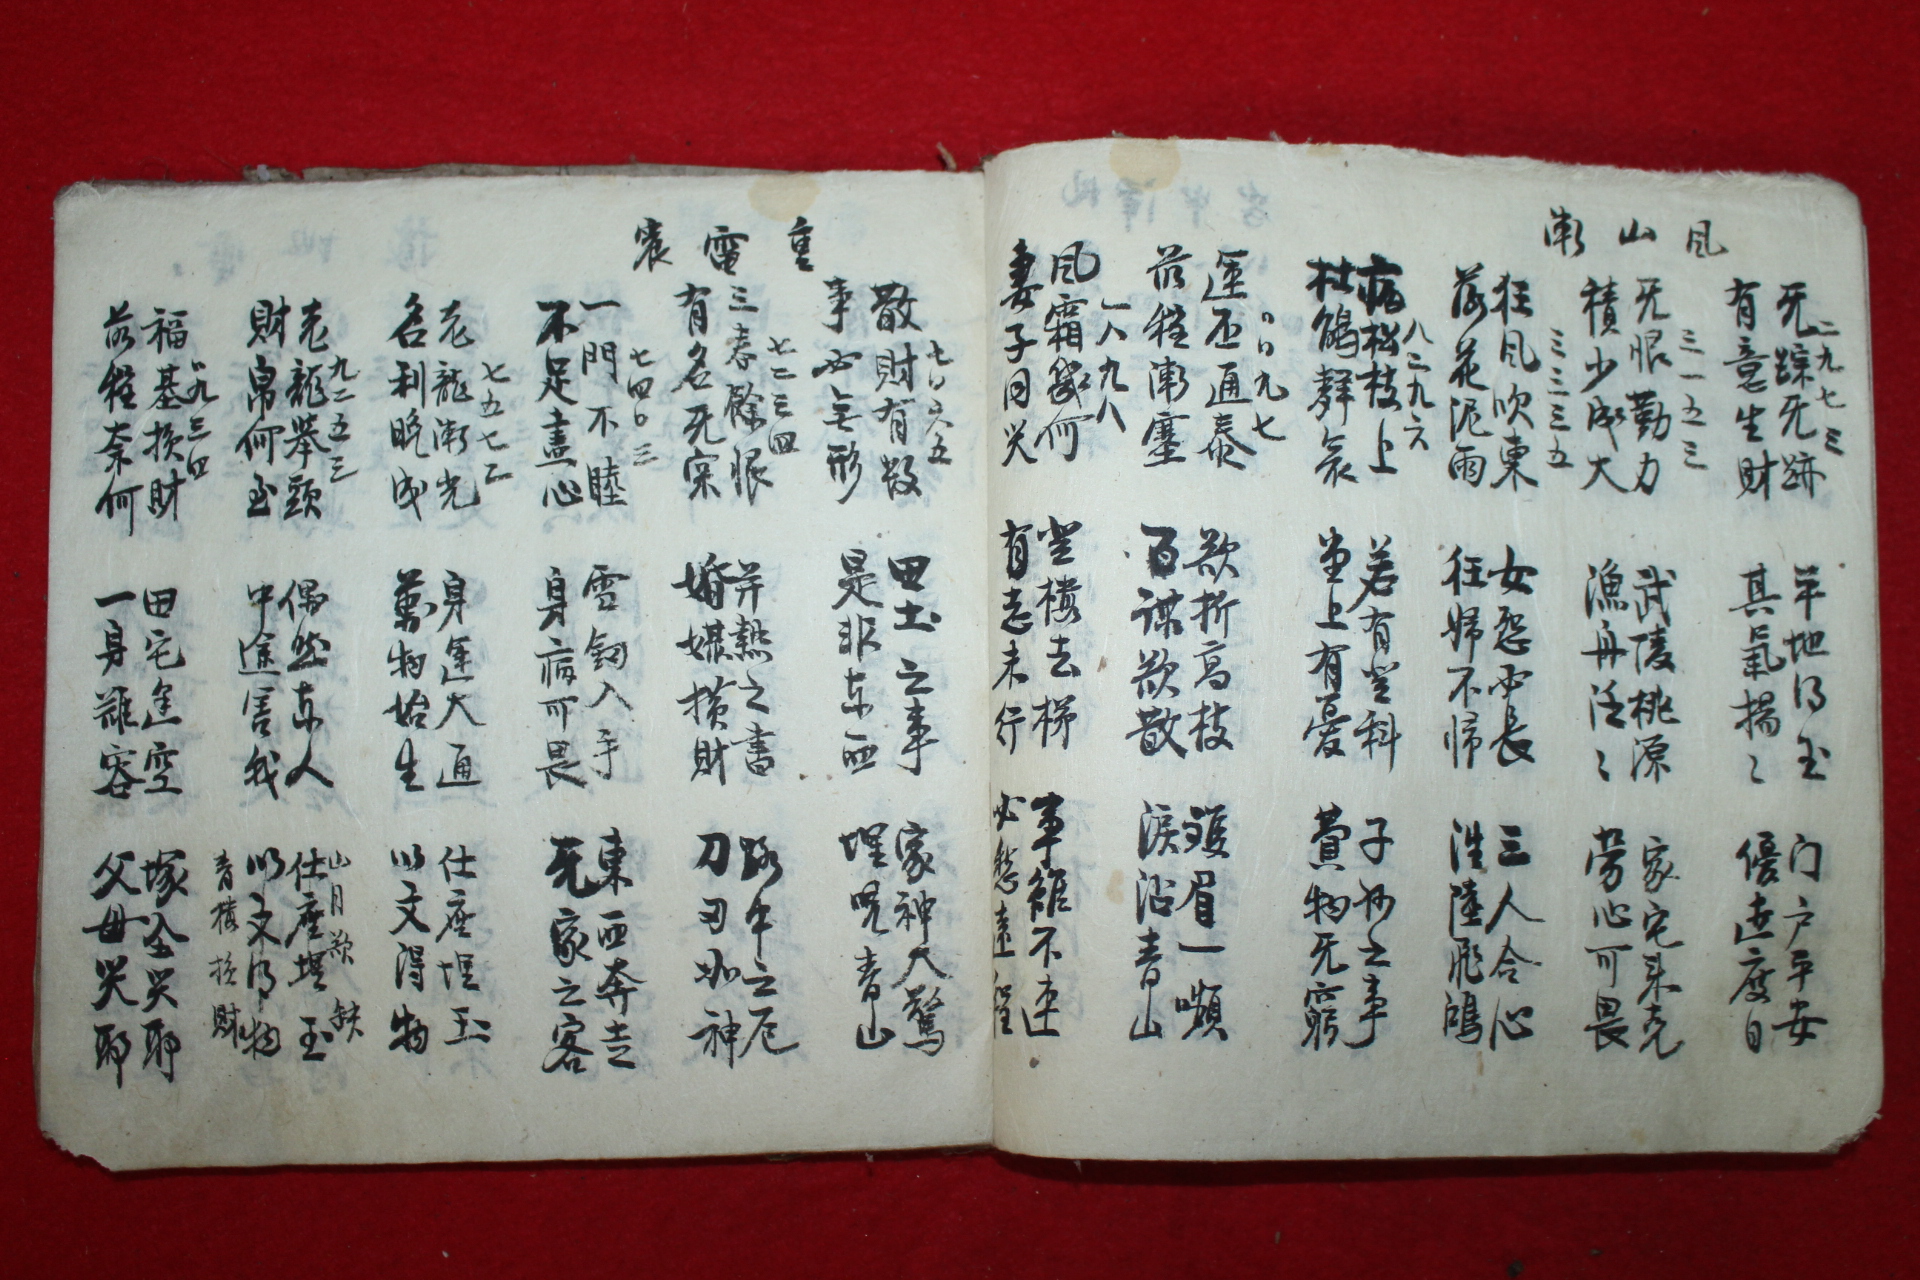 風山漸
二九七三
死踪死跡 平地得玉 门户平安
有意生財 其氣揚〻 優遊度日
三一五三
无恨勤力 武陵桃源 家宅未免
積少成大 漁舟泛〻 勞心可畏
三三三五
狂風吹東 女怨必長 三人合心
落花泥雨 往婦不歸 進陸飛鴻
八三九六
病松枝上 若有登科 子孙之事
杜鵑群哀 堂上有憂 賣物无窮
口口九七
運丕通泰 欲折高枝 雙眉一嚬
前程漸塞 百謀欲散 淚沾青山
一八九八
風霜幾何 登樓去梯 事雖不速
妻子同哭 有志未行 必愁遠程
重雷震
七口六五
散財有數 田土之事 家神大驚
事必無形 是非東西 埋哭青山
七二三四
三春餘恨 并熱之書 路中之厄
有名死宋 婚媒損財 刀刃如神
七四口三
一門不睦 雪鉤入手 東西奔走
不足盡心 身病可畏 死家之客
七五七二
老龍漸光 身運大通 仕座埋玉
名利晩成 萬物始生 以文得物
九二五三
老龍擧頭 偶然東人 仕座埋玉
山月欲缺
財帛何至 中途害我 以文得物
青樓損財
口九三四
福基損財 田宅進空 塚全哭耶
前程奈何 一身難容 父母哭耶